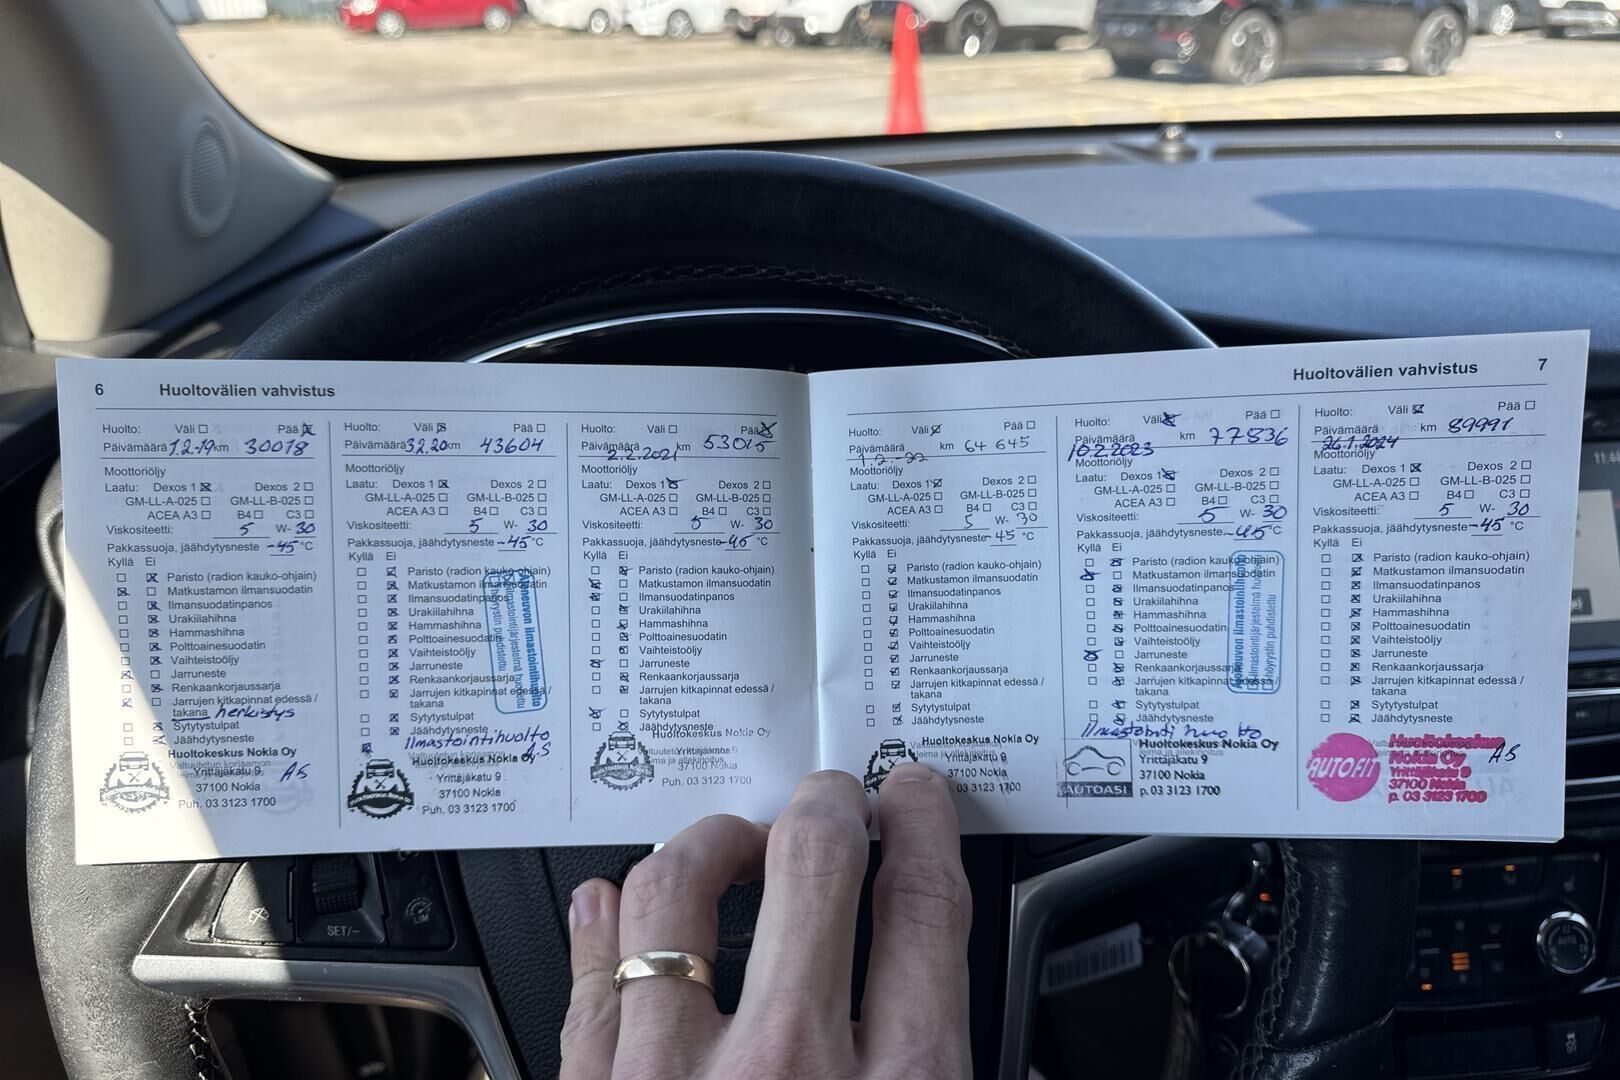 6 Huoltovälien vahvistus
Huolto: Väli Pää
Päivämäärä 1.2.-19 km 30018
Moottoriöljy
Laatu: Dexos 1 Dexos 2
GM-LL-A-025 GM-LL-B-025
ACEA A3 B4 C3
Viskositeetti: 5 W- 30
Pakkassuoja, jäähdytysneste -45 °C
Kyllä Ei
Paristo (radion kauko-ohjain)
Matkustamon ilmansuodatin
Ilmansuodatinpanos
Urakiilahihna
Hammashihna
Polttoainesuodatin
Vaihteistoöljy
Jarruneste
Renkaankorjaussarja
Jarrujen kitkapinnat edessä /
takana herkistys
Sytytystulpat
Jäähdytysneste
Huoltokeskus Nokia Oy
Yrittäjäkatu 9 AS
37100 Nokia
Puh. 03 3123 1700
Huolto: Väli Pää
Päivämäärä 3.2.20 km 43604
Moottoriöljy
Laatu: Dexos 1 Dexos 2
GM-LL-A-025 GM-LL-B-025
ACEA A3 B4 C3
Viskositeetti: 5 W- 30
Pakkassuoja, jäähdytysneste -45 °C
Kyllä Ei
Paristo (radion kauko-ohjain)
Matkustamon ilmansuodatin
Ilmansuodatinpanos
Urakiilahihna
Hammashihna
Polttoainesuodatin
Vaihteistoöljy
Jarruneste
Renkaankorjaussarja
Jarrujen kitkapinnat edessä /
takana
Sytytystulpat
Jäähdytysneste
Ajoneuvon ilmastointihuolto
Ilmastointijärjestelmä huollettu
Höyrystin puhdistettu
Ilmastointihuolto
AS
Huoltokeskus Nokia Oy
Yrittäjäkatu 9
37100 Nokia
Puh. 03 3123 1700
Huolto: Väli Pää
Päivämäärä 2.2.2021 km 53015
Moottoriöljy
Laatu: Dexos 1 Dexos 2
GM-LL-A-025 GM-LL-B-025
ACEA A3 B4 C3
Viskositeetti: 5 W- 30
Pakkassuoja, jäähdytysneste -45 °C
Kyllä Ei
Paristo (radion kauko-ohjain)
Matkustamon ilmansuodatin
Ilmansuodatinpanos
Urakiilahihna
Hammashihna
Polttoainesuodatin
Vaihteistoöljy
Jarruneste
Renkaankorjaussarja
Jarrujen kitkapinnat edessä /
takana
Sytytystulpat
Jäähdytysneste
Huoltokeskus Nokia Oy
Yrittäjäkatu 9
37100 Nokia
Puh. 03 3123 1700
Huoltovälien vahvistus 7
Huolto: Väli Pää
Päivämäärä 1.2.-22 km 64 645
Moottoriöljy
Laatu: Dexos 1 Dexos 2
GM-LL-A-025 GM-LL-B-025
ACEA A3 B4 C3
Viskositeetti: 5 W- 30
Pakkassuoja, jäähdytysneste -45 °C
Kyllä Ei
Paristo (radion kauko-ohjain)
Matkustamon ilmansuodatin
Ilmansuodatinpanos
Urakiilahihna
Hammashihna
Polttoainesuodatin
Vaihteistoöljy
Jarruneste
Renkaankorjaussarja
Jarrujen kitkapinnat edessä /
takana
Sytytystulpat
Jäähdytysneste
Huoltokeskus Nokia Oy
Yrittäjäkatu 9
37100 Nokia
03 3123 1700
Huolto: Väli Pää
Päivämäärä 10.2.2023 km 77836
Moottoriöljy
Laatu: Dexos 1 Dexos 2
GM-LL-A-025 GM-LL-B-025
ACEA A3 B4 C3
Viskositeetti: 5 W- 30
Pakkassuoja, jäähdytysneste -45 °C
Kyllä Ei
Paristo (radion kauko-ohjain)
Matkustamon ilmansuodatin
Ilmansuodatinpanos
Urakiilahihna
Hammashihna
Polttoainesuodatin
Vaihteistoöljy
Jarruneste
Renkaankorjaussarja
Jarrujen kitkapinnat edessä /
takana
Sytytystulpat
Jäähdytysneste
Ajoneuvon ilmastointihuolto
Ilmastointijärjestelmä huollettu
Höyrystin puhdistettu
Ilmastointi huolto
AUTOASI
Huoltokeskus Nokia Oy
Yrittäjäkatu 9
37100 Nokia
p. 03 3123 1700
Huolto: Väli Pää
Päivämäärä 26.1.2024 km 89991
Moottoriöljy
Laatu: Dexos 1 Dexos 2
GM-LL-A-025 GM-LL-B-025
ACEA A3 B4 C3
Viskositeetti: 5 W- 30
Pakkassuoja, jäähdytysneste -45 °C
Kyllä Ei
Paristo (radion kauko-ohjain)
Matkustamon ilmansuodatin
Ilmansuodatinpanos
Urakiilahihna
Hammashihna
Polttoainesuodatin
Vaihteistoöljy
Jarruneste
Renkaankorjaussarja
Jarrujen kitkapinnat edessä /
takana
Sytytystulpat
Jäähdytysneste
AUTOFIT
Huoltokeskus
Nokia Oy AS
Yrittäjäkatu 9
37100 Nokia
p. 03 3123 1700
SET/-
LIM
AUTO